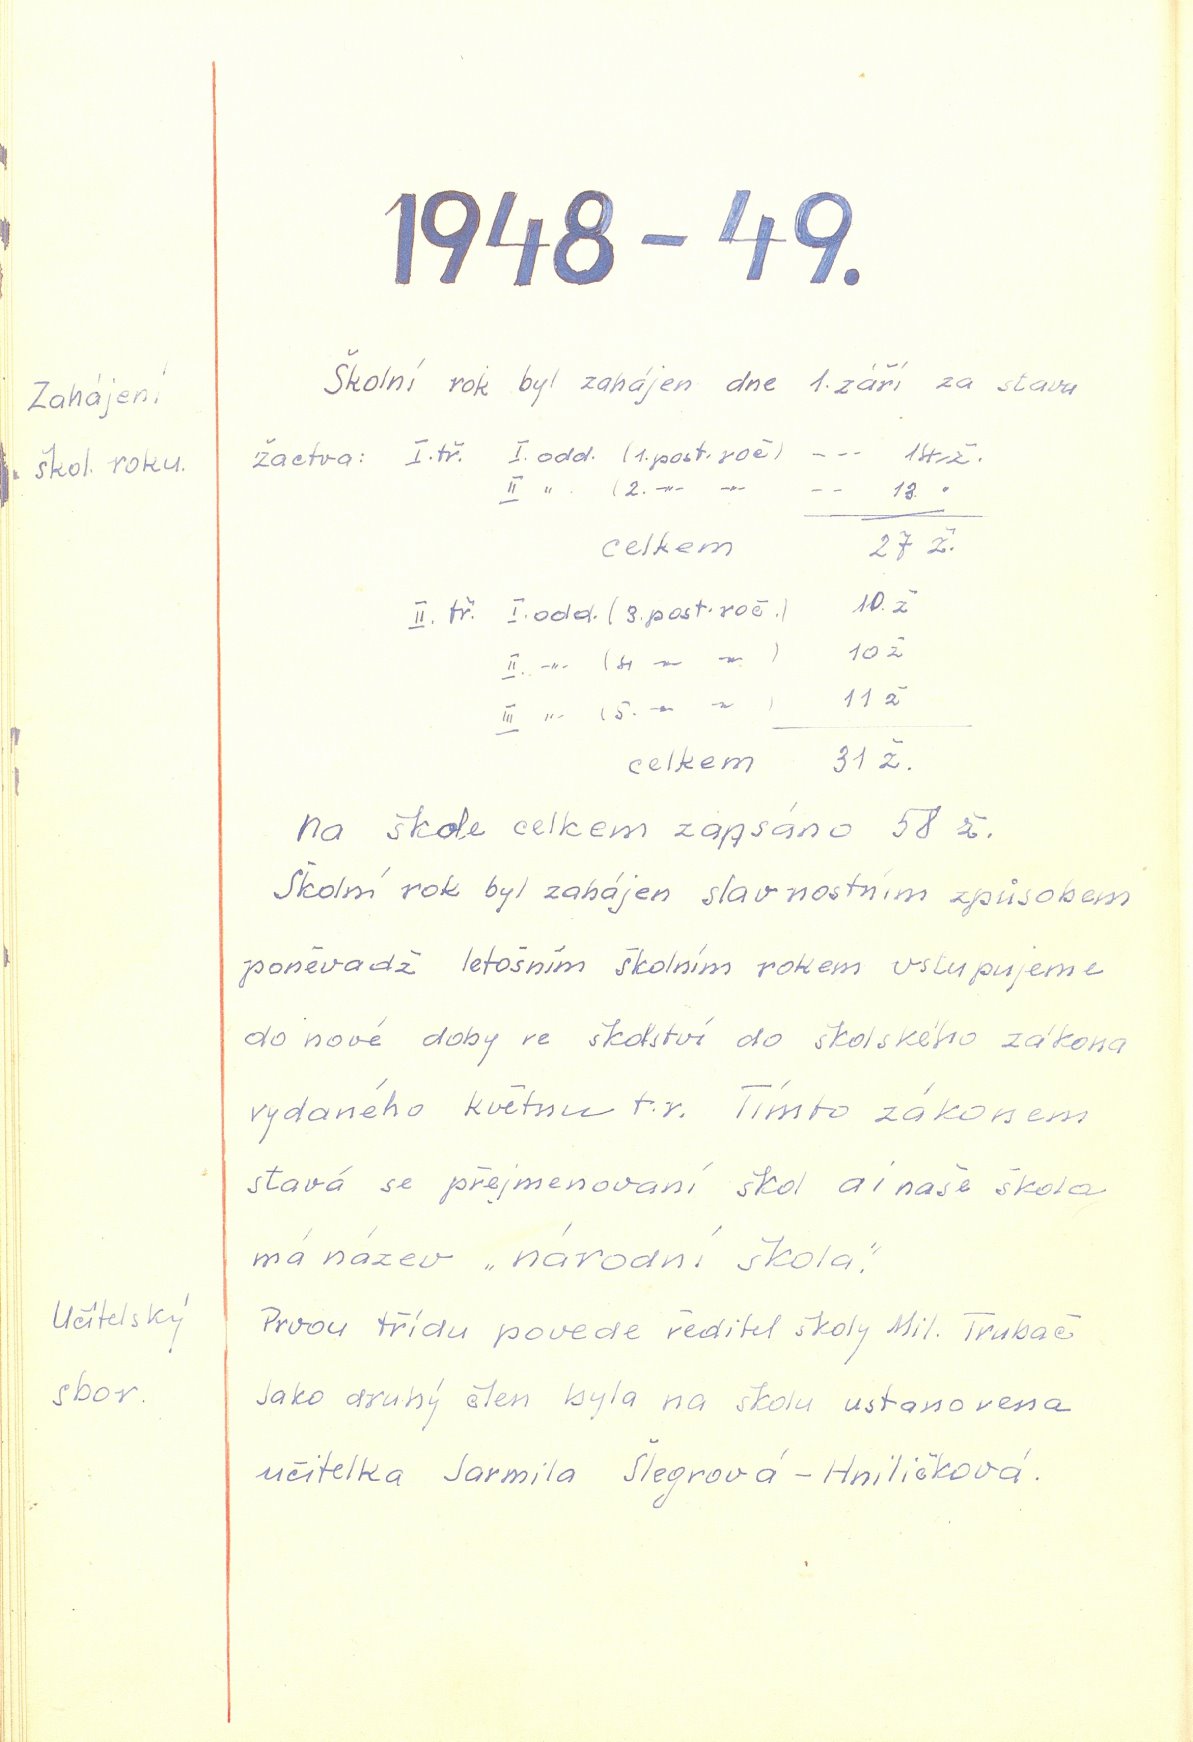 1948 - 49.
Zahájení
škol. roku.
Školní rok byl zahájen dne 1. září za stavu
žactva: I. tř. I. odd. (1. post. roč) --- 14 ž.
II " (2. -"- -"- -- 13 "
celkem 27 ž.
II. tř. I. odd. (3. post. roč.) 10. ž
II. -"- (4 -"- -"- ) 10 ž
III -"- (5. -"- -"- ) 11 ž
celkem 31 ž.
Na škole celkem zapsáno 58 ž.
Školní rok byl zahájen slavnostním způsobem
poněvadž letošním školním rokem vstupujeme
do nové doby ve školství do školského zákona
vydaného květnu t. r. Tímto zákonem
stavá se přejmenovaní škol a i naše škola
má název „národní škola".
Učitelský
sbor.
Prvou třídu povede ředitel školy Mil. Trubač
Jako druhý člen byla na školu ustanovena
učitelka Jarmila Šlegrová - Hniličková.